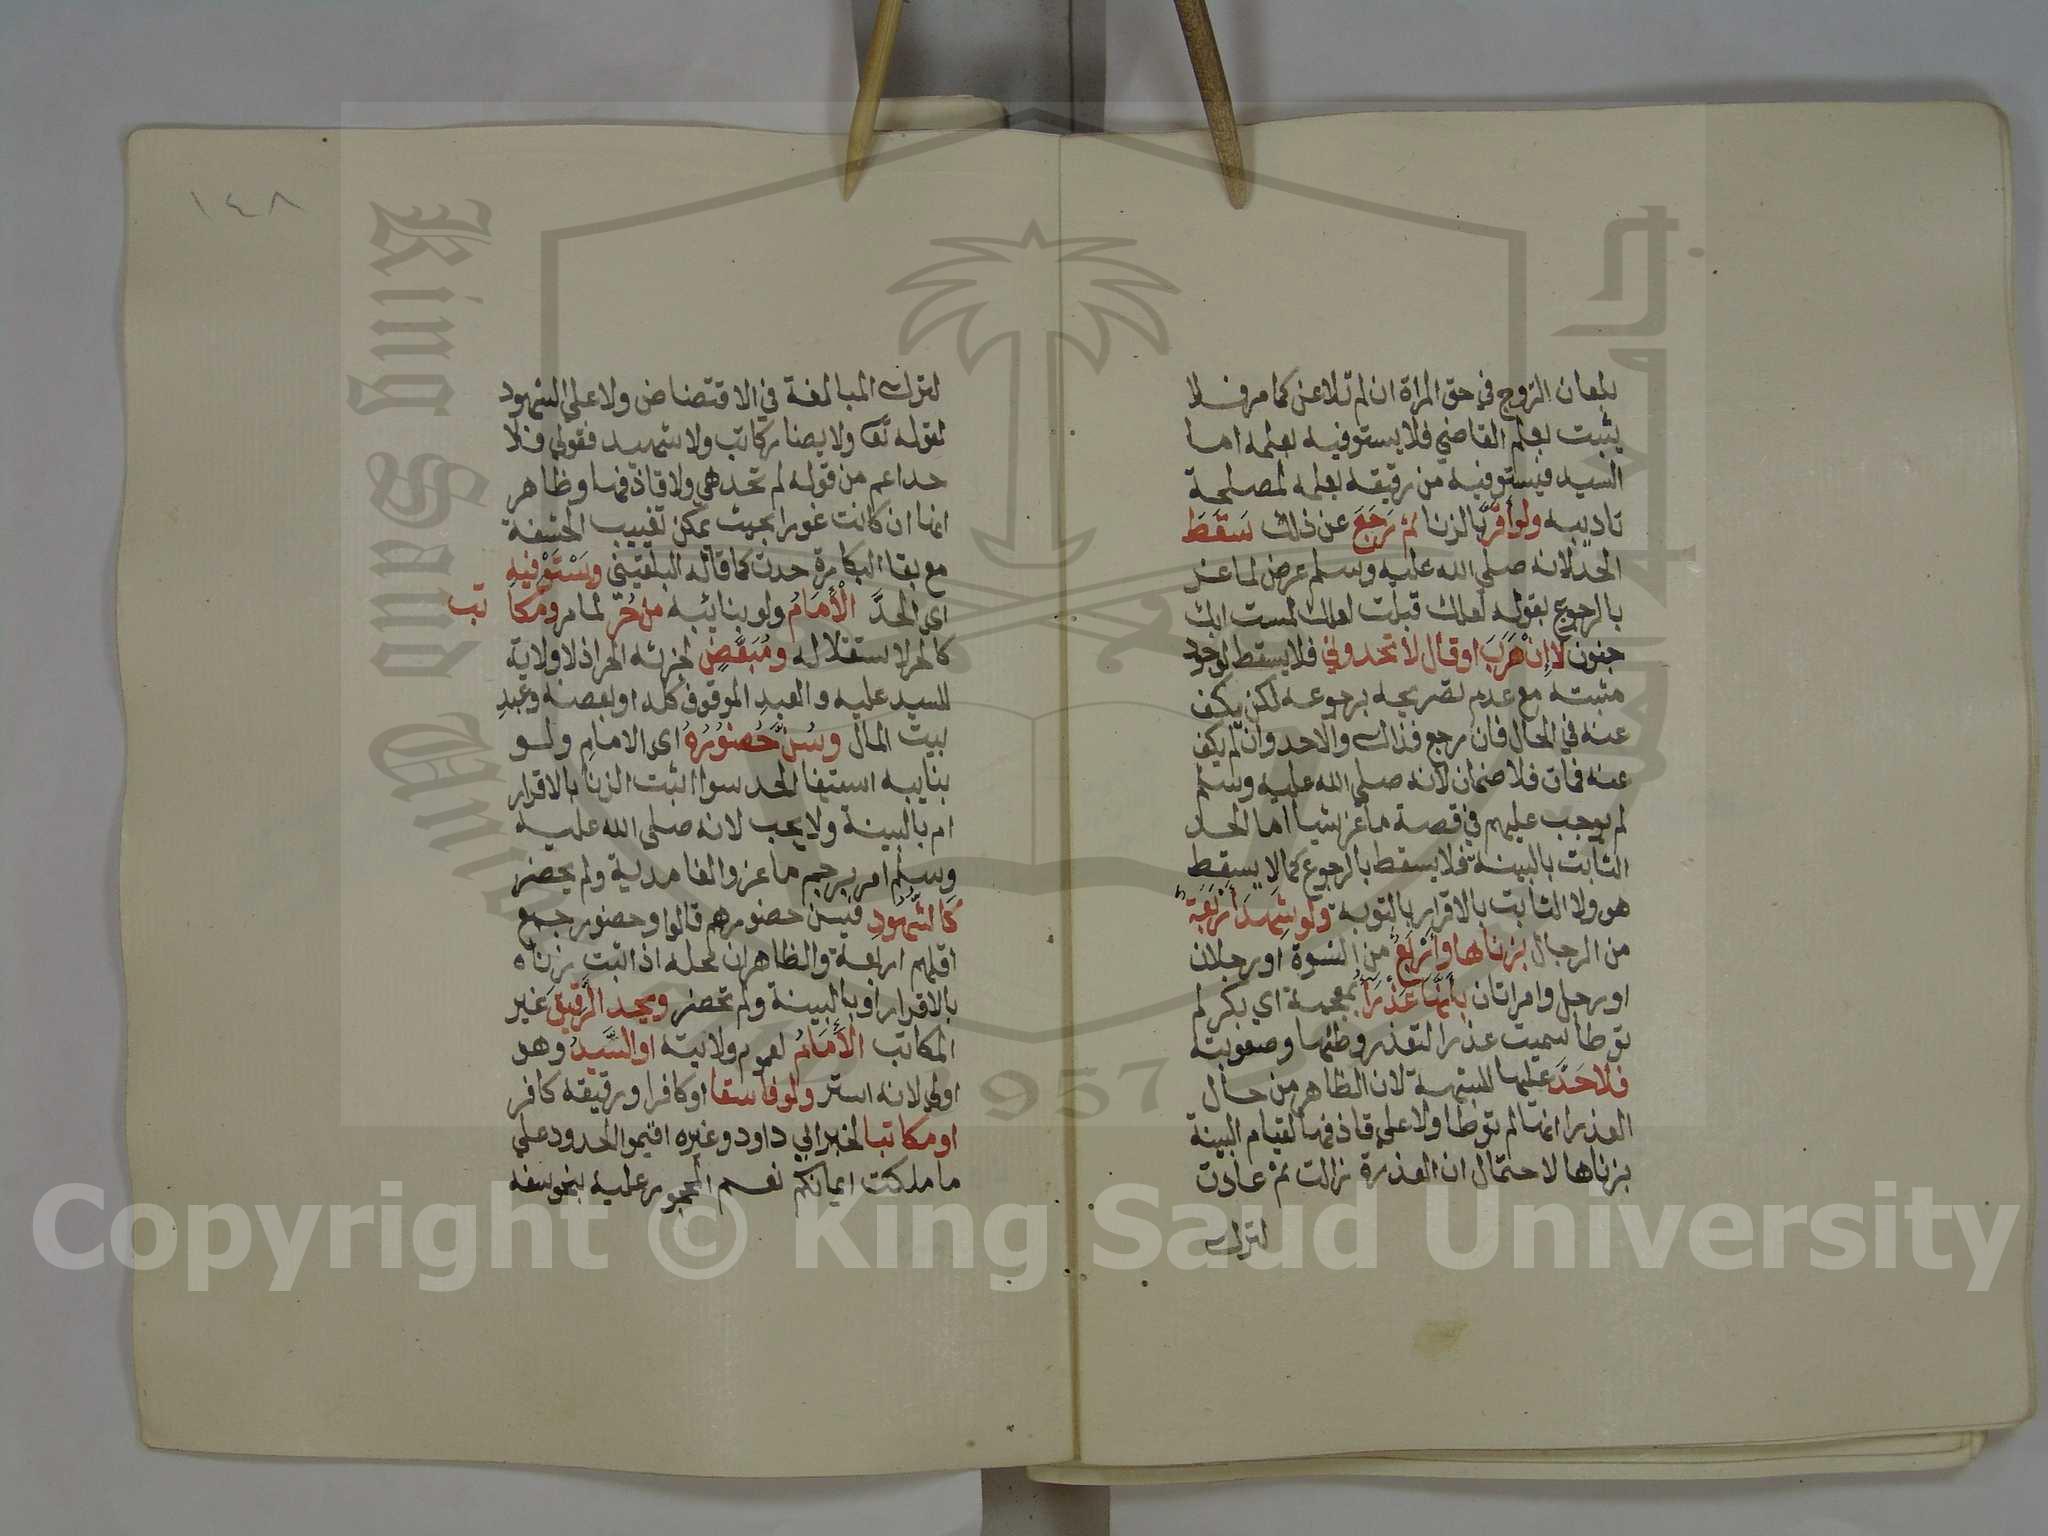 بلعان الزوج في حق المراة ان لم تلاعن كما مر فلا
يثبت بعلم القاضي فلا يستوفيه بعلمه اما
السيد فيستوفيه من رقيقه بعلمه لمصلحة
تاديبه ولو أقر بالزنا ثم رَجَعَ عن ذلك سَقَطَ
الحد لانه صلي الله عليه وسلم عرض لماعز
بالرجوع بقوله لعلك قبلت لعلك لمست ابك
جنون لا إنْ هَرَبَ او قال لا تحدوني فلا يسقط لوجود
مثبته مع عدم تصريحه برجوعه لكن يكف
عنه في الحال فان رجع فذاك والاحد وان لم يكف
عنه فمات فلا ضمان لانه صلي الله عليه وسلم
لم يوجب عليهم في قصة ماعز شيا اما الحد
الثابت بالبينة فلا يسقط بالرجوع كما لا يسقط
هو ولا الثابت بالاقرار بالتوبه ولو شَهِدَ أرْبَعَة
من الرجال بزناها وأرْبَعُ من النسوة او رجلان
او رجل وامراتان بأنَّها عَذْرَآءُ بمعجمة اي بكر لم
توطا سميت عذرا لتعذر وطئها وصعوبته
فلا حَدَّ عليها للشبهة لان الظاهر من حال
العذرا انها لم توطا ولا علي قاذفها لقيام البينة
بزناها لاحتمال ان العذرة زالت ثم عادت
لترك
١٤٨
لترك المبالغة في الاقتضاض ولا علي الشهود
لقوله تعا ولا يضار كاتب ولا شهيد فقولي فلا
حد اعم من قوله لم تحد هي ولا قاذفها وظاهر
انها ان كانت غورا بحيث يمكن تغييب الحشفة
مع بقا البكارة حدت كما قاله البلقيني ويَسْتَوْفِيهِ
اى الحدَّ الْأمَامُ ولو بنائبه من حُرّ لما مر ومكاتب
كالحر لاستقلاله ومُبَعَّضٍ لجزئه الحر اذ لا ولاية
للسيد عليه والعبدِ الموقوف كله او بعضه وعبدِ
بيت المال وسُنَّ حُضورُهُ اى الامامِ ولو
بنايبه استيفا الحد سوا اثبت الزنا بالاقرار
ام بالبينة ولا يجب لانه صلى الله عليه
وسلم امر برجم ماعز والغامدية ولم يحضر
كالشُّهُودِ فيسن حضورهم قالوا وحضور جمع
اقلهم اربعة والظاهر ان محله اذا ثبت زناه
بالاقرار او بالبينة ولم تحضر ويحد الرَّقيقَ غير
المكاتب الْأَمَامُ لعموم ولايته او السَّيدُ وهو
اولي لانه استر ولو فاسقا او كافرا ورقيقه كافر
او مكاتبا لخبر ابي داود وغيره اقيموا الحدود على
ما ملكت ايمانكم نعم المحجور عليه بنحو سفه
King Saud University
1957
Copyright © King Saud University